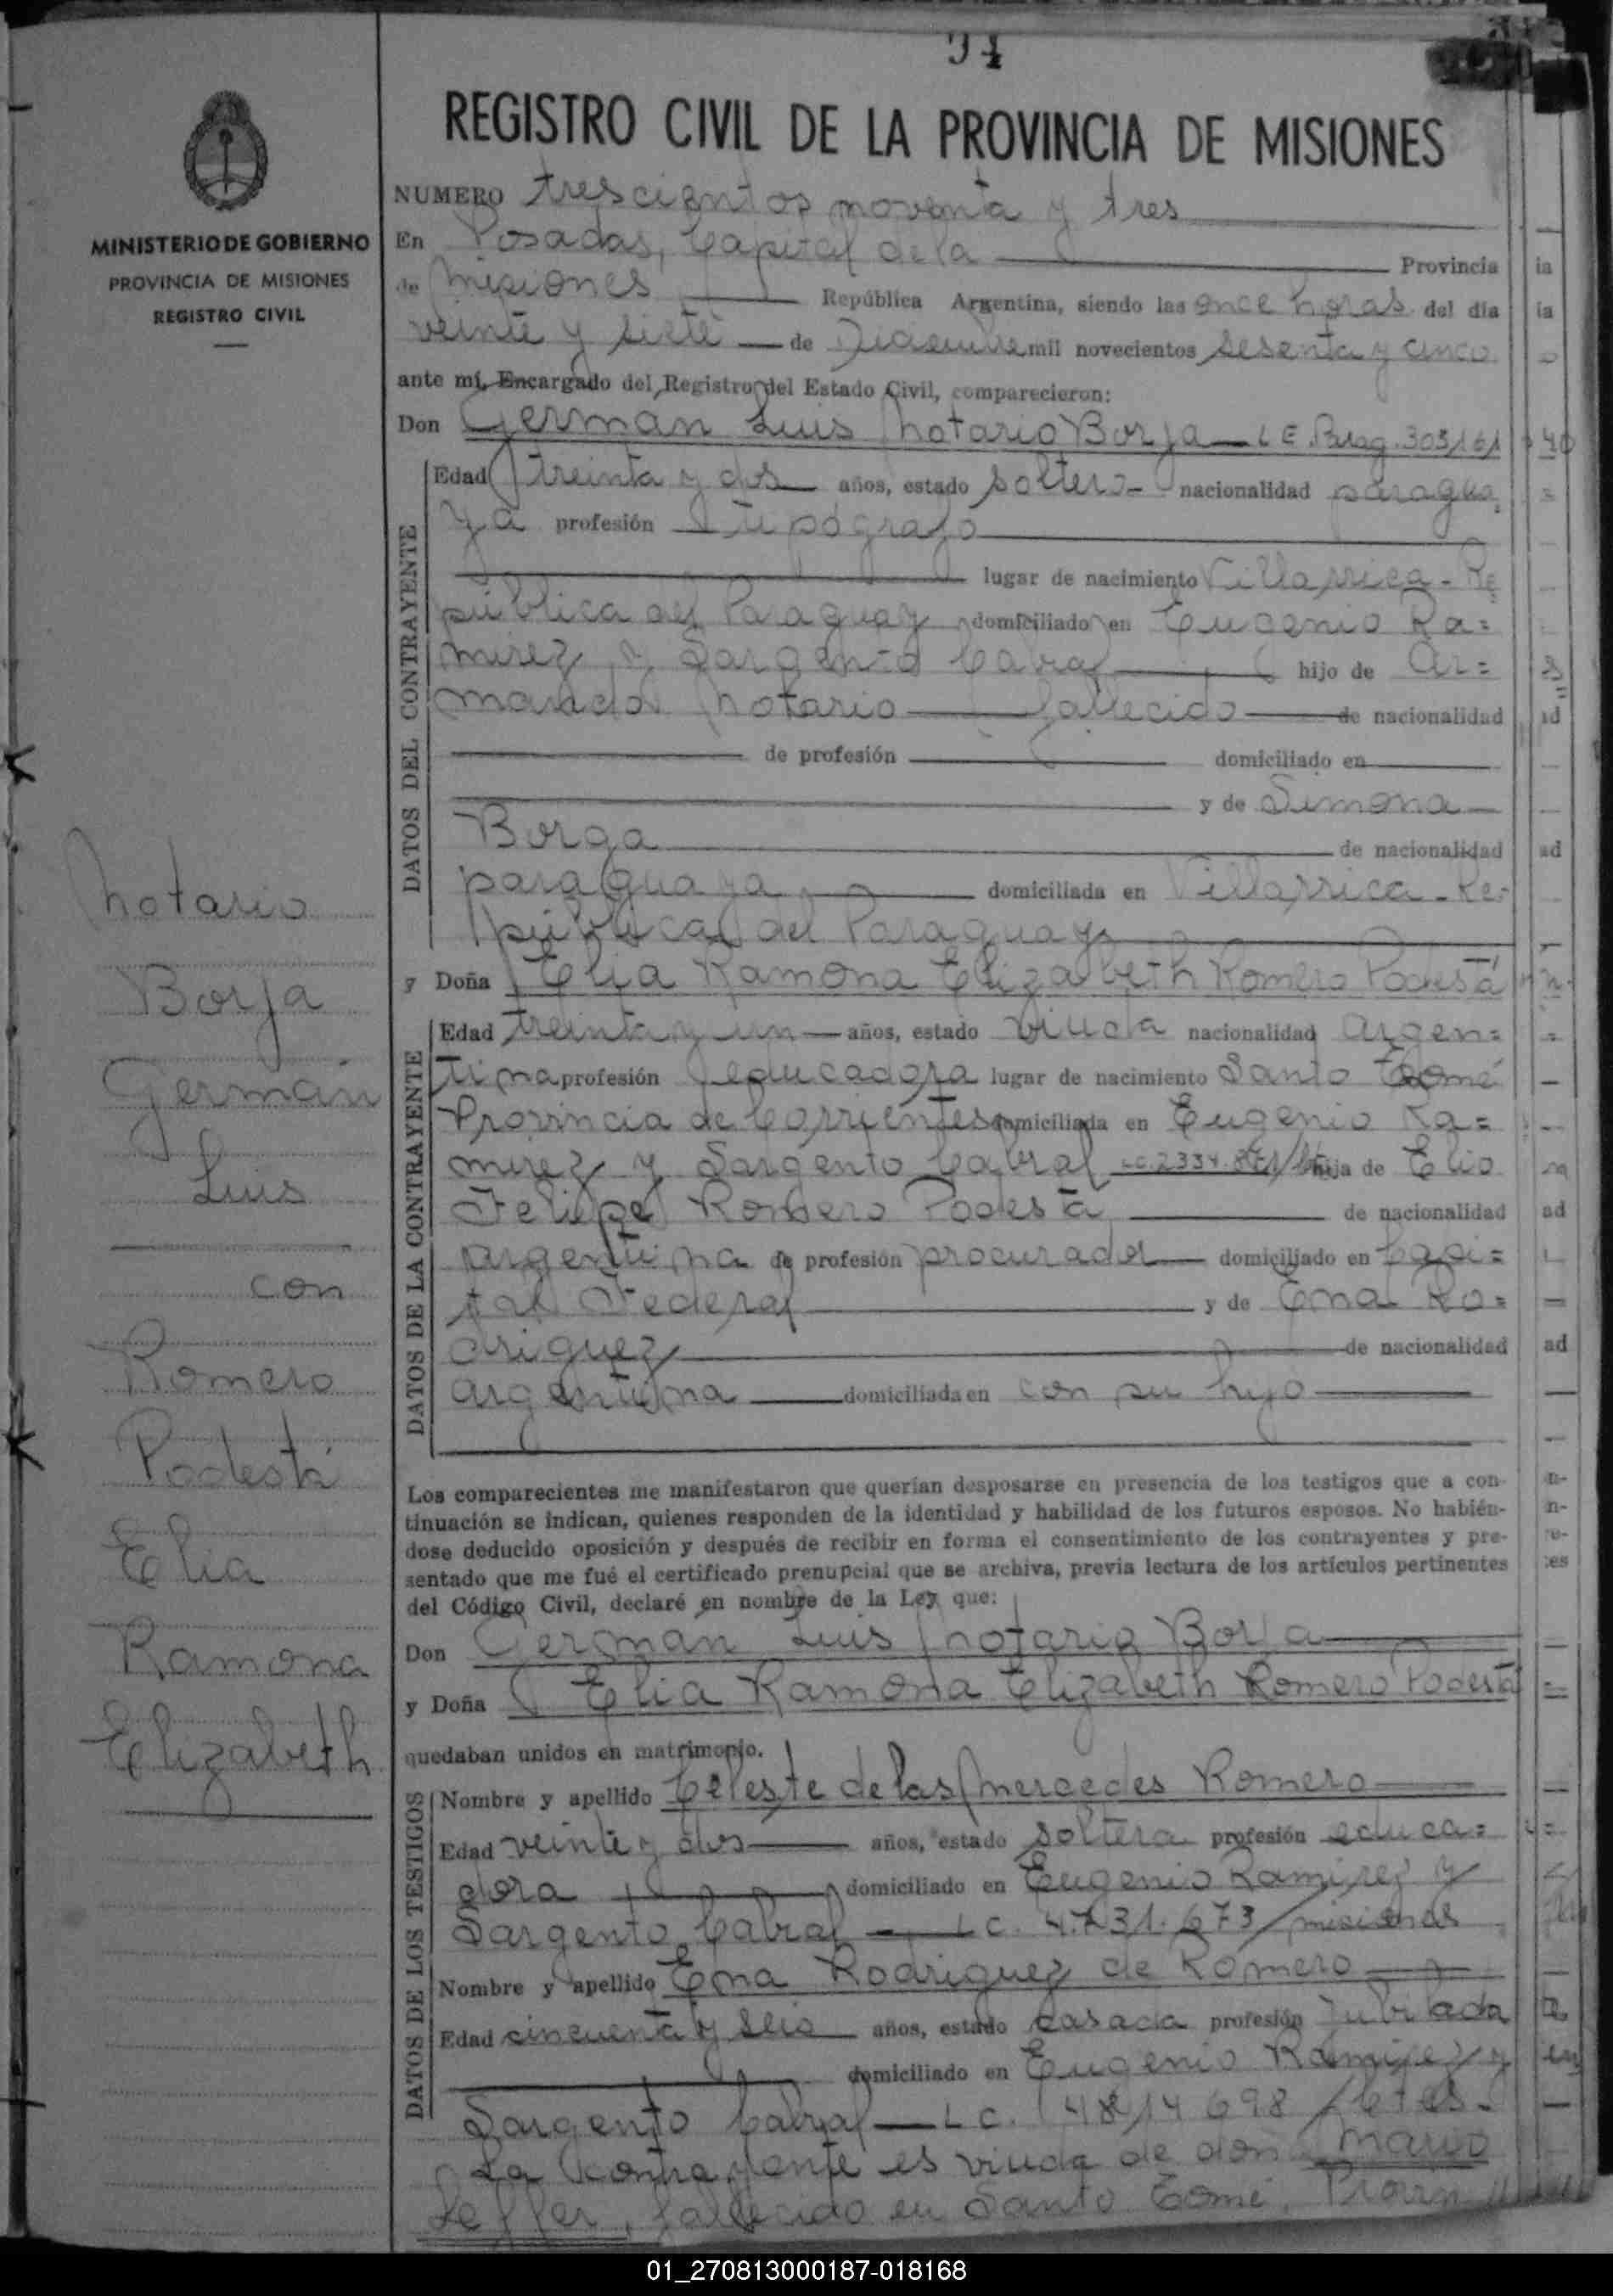 94
REGISTRO CIVIL DE LA PROVINCIA DE MISIONES
MINISTERIO DE GOBIERNO
PROVINCIA DE MISIONES
REGISTRO CIVIL
NUMERO trescientos noventa y tres
En Posadas, Capital de la Provincia
de Misiones República Argentina, siendo las once horas del día
veinte y siete de Diciembre mil novecientos sesenta y cinco
ante mí, Encargado del Registro del Estado Civil, comparecieron:
Don German Luis Notario Borja L E. Parag. 303161
DATOS DEL CONTRAYENTE
Edad treinta y dos años, estado soltero nacionalidad paragua
ya profesión Tipógrafo
lugar de nacimiento Villarrica - Re
pública del Paraguay domiciliado en Eugenio Ra=
mirez y Sargento Cabral hijo de Ar=
mando Notario fallecido de nacionalidad
de profesión domiciliado en
y de Simona
Borga de nacionalidad
paraguaya domiciliada en Villarrica - Re-
pública del Paraguay
y Doña Elia Ramona Elizabeth Romero Podestá
DATOS DE LA CONTRAYENTE
Edad treinta y un años, estado viuda nacionalidad argen=
tina profesión educadora lugar de nacimiento Santo Tomé
Provincia de Corrientes domiciliada en Eugenio Ra=
mirez y Sargento Cabral hija de Elio
Felipe Romero Podestá de nacionalidad
argentina de profesión procurador domiciliado en Capi=
tal Federal y de Ema Ro=
driguez de nacionalidad
argentina domiciliada en con su hijo
Los comparecientes me manifestaron que querían desposarse en presencia de los testigos que a con-
tinuación se indican, quienes responden de la identidad y habilidad de los futuros esposos. No habién-
dose deducido oposición y después de recibir en forma el consentimiento de los contrayentes y pre-
sentado que me fué el certificado prenupcial que se archiva, previa lectura de los artículos pertinentes
del Código Civil, declaré en nombre de la Ley que:
Don German Luis Notario Borja
y Doña Elia Ramona Elizabeth Romero Podestá
quedaban unidos en matrimonio.
DATOS DE LOS TESTIGOS
Nombre y apellido Celeste de las Mercedes Romero
Edad veinte y dos años, estado soltera profesión educa=
dora domiciliado en Eugenio Ramirez y
Sargento Cabral L C. 4.731.673/misiones
Nombre y apellido Ema Rodriguez de Romero
Edad cincuenta y seis años, estado casada profesión Jubilada
domiciliado en Eugenio Ramirez y
Sargento Cabral L C.
La contrayente es viuda de don Mario
Leffler, fallecido en Santo Tomé,
Notario
Borja
Germán
Luis
con
Romero
Podestá
Elia
Ramona
Elizabeth
01_270813000187-018168